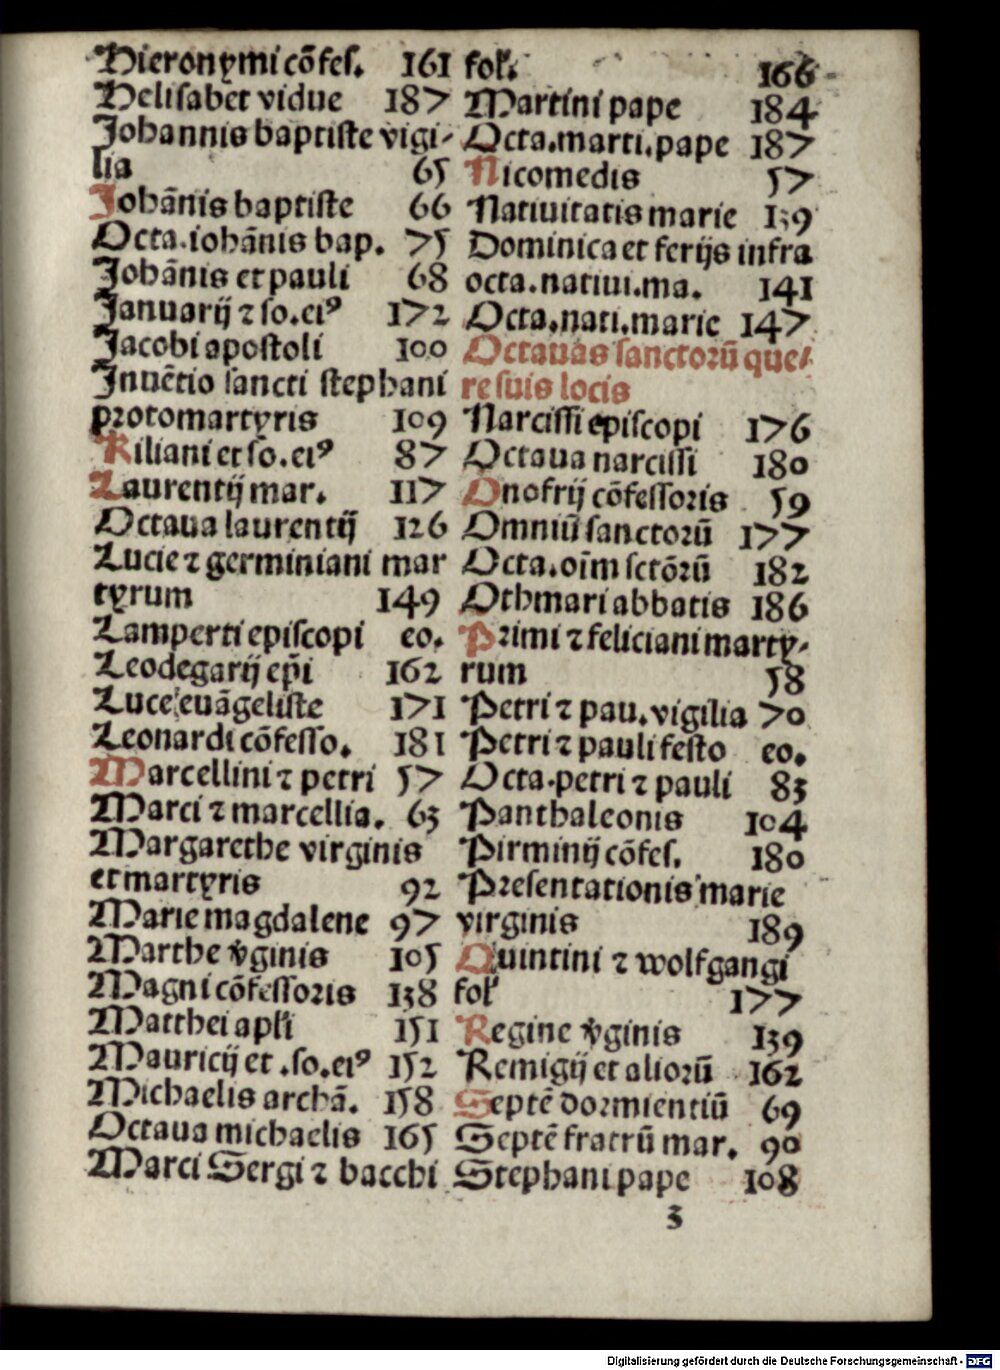 Hieronymi cõfes. 161
Helisabet vidue 187
Johannis baptiste vigi-
lia 65
Johãnis baptiste 66
Octa.iohãnis bap. 75
Johãnis et pauli 68
Januarij ⁊ so.eiꝰ 172
Jacobi apostoli 100
Inuẽtio sancti stephani
protomartyris 109
Kiliani et so.eiꝰ 87
Laurentij mar. 117
Octaua laurentij 126
Lucie ⁊ germiniani mar
tyrum 149
Lamperti episcopi eo.
Leodegarij ep̃i 162
Luce euãgeliste 171
Leonardi cõfesso. 181
Marcellini ⁊ petri 57
Marci ⁊ marcellia. 63
Margarethe virginis
et martyris 92
Marie magdalene 97
Marthe ṽginis 105
Magni cõfessoris 138
Matthei apl̃i 151
Mauricij et .so.eiꝰ 152
Michaelis archã. 158
Octaua michaelis 165
Marci Sergi ⁊ bacchi
fol̃. 166
Martini pape 184
Octa.marti.pape 187
Nicomedis 57
Natiuitatis marie 139
Dominica et ferijs infra
octa.natiui.ma. 141
Octa.nati.marie 147
Octauas sanctorũ que/
re suis locis
Narcissi episcopi 176
Octaua narcissi 180
Onofrij cõfessoris 59
Omniũ sanctorũ 177
Octa.oĩm sctõrũ 182
Othmari abbatis 186
Primi ⁊ feliciani marty-
rum 58
Petri ⁊ pau.vigilia 70
Petri ⁊ pauli festo eo.
Octa.petri ⁊ pauli 83
Panthaleonis 104
Pirminij cõfes. 180
Presentationis marie
virginis 189
Quintini ⁊ wolfgangi
fol̃ 177
Regine ṽginis 139
Remigij et aliorũ 162
Septẽ dormientiũ 69
Septẽ fratrũ mar. 90
Stephani pape 108
3
Digitalisierung gefördert durch die Deutsche Forschungsgemeinschaft - DFG